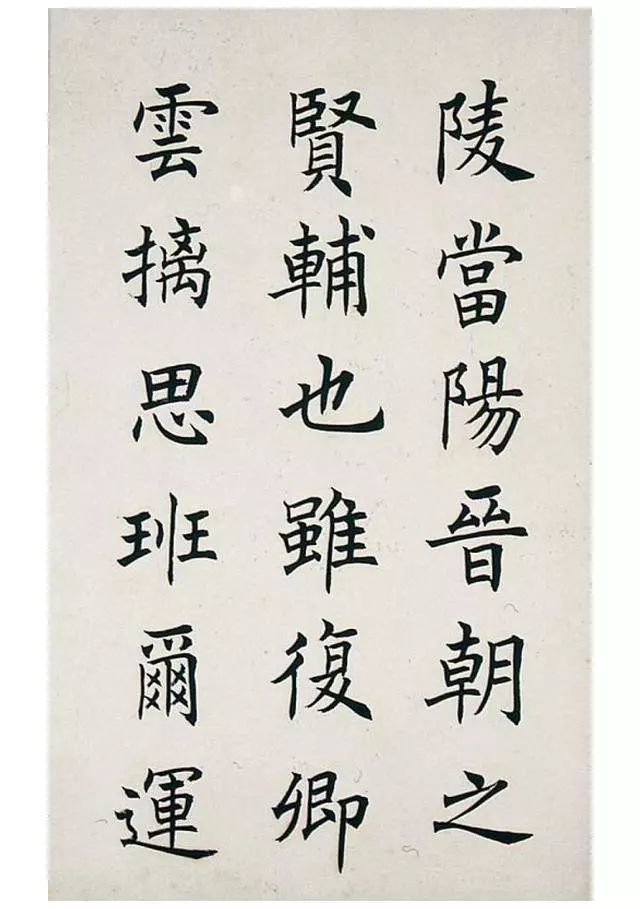 陵當陽晉朝之
賢輔也雖復卿
雲摛思班爾運